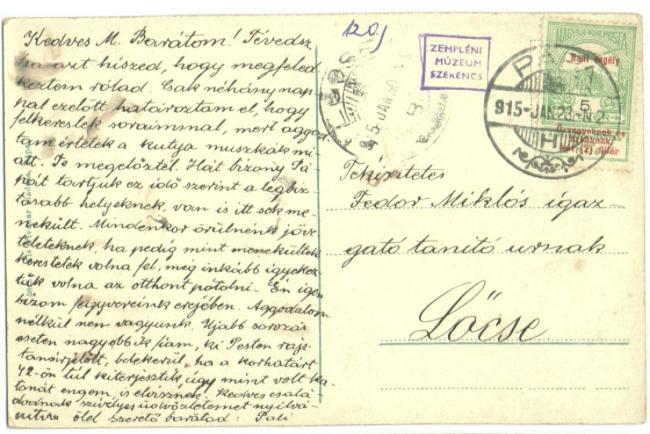 Kedves M. Barátom! Tévedsz,
ha azt hiszed, hogy megfeled
keztem rólad. Csak néhány nap
pal ezelőtt határoztam el, hogy
felkereslek soraimmal, mert aggód
tam értetek a kutya muszkák mi
att. Te megelőztél. Hát bizony Pá
pát tartjuk ez idő szerint a legbiz
tosabb helyeknek, van is itt sok me
nekült. Mindenkor örülnénk jöve
teleteknek, ha pedig mint menekültek
kerestetek volna fel, még inkább igyekez
tük volna az otthont pótolni. Én igen
bízom fegyvereink erejében. Aggodalom
nélkül nem vagyunk. Ujabb sorozás
esetén nagyobbik fiam, ki Pesten rajz
tanárjelölt, belekerül, ha a korhatárt
42-ön túl kiterjesztik, úgy mint volt ka
tonát engem is elvisznek. Kedves csalá
dodnak szívélyes üdvözletemet nyilvá
nítva ölel szerető barátod: Pali
120
ZEMPLÉNI
MÚZEUM
SZERENCS
915 JAN 23
Tekintetes
Fedor Miklós igaz-
gató tanító urnak
Lőcse
MAGYAR KIR. POSTA
Hadi segély
Özvegyeknek és
árváknak
két (2) fillér
5